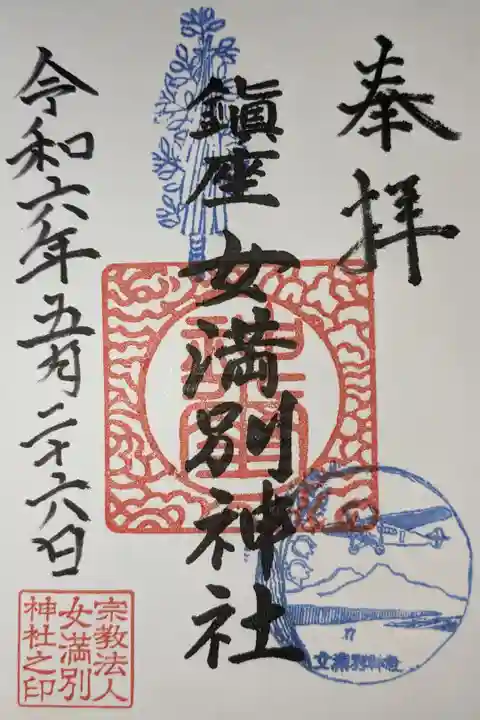 奉拝
鎭座
女満別神社
令和六年五月二十六日
宗教法人
女満別
神社之印
女満別神社